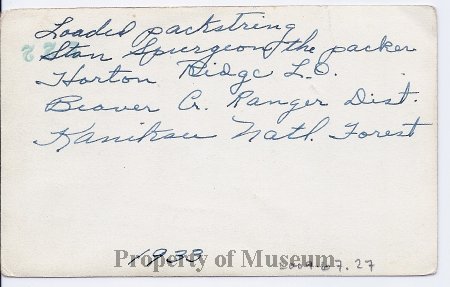 Loaded packstring
Stan Spurgeon the packer
Horton Ridge L.O.
Beaver Cr. Ranger Dist.
Kaniksu Natl. Forest
1933
Property of Museum
2009.27.27